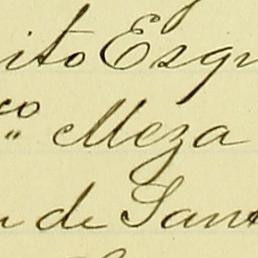 ito Esqu
co Meza
n de Sant